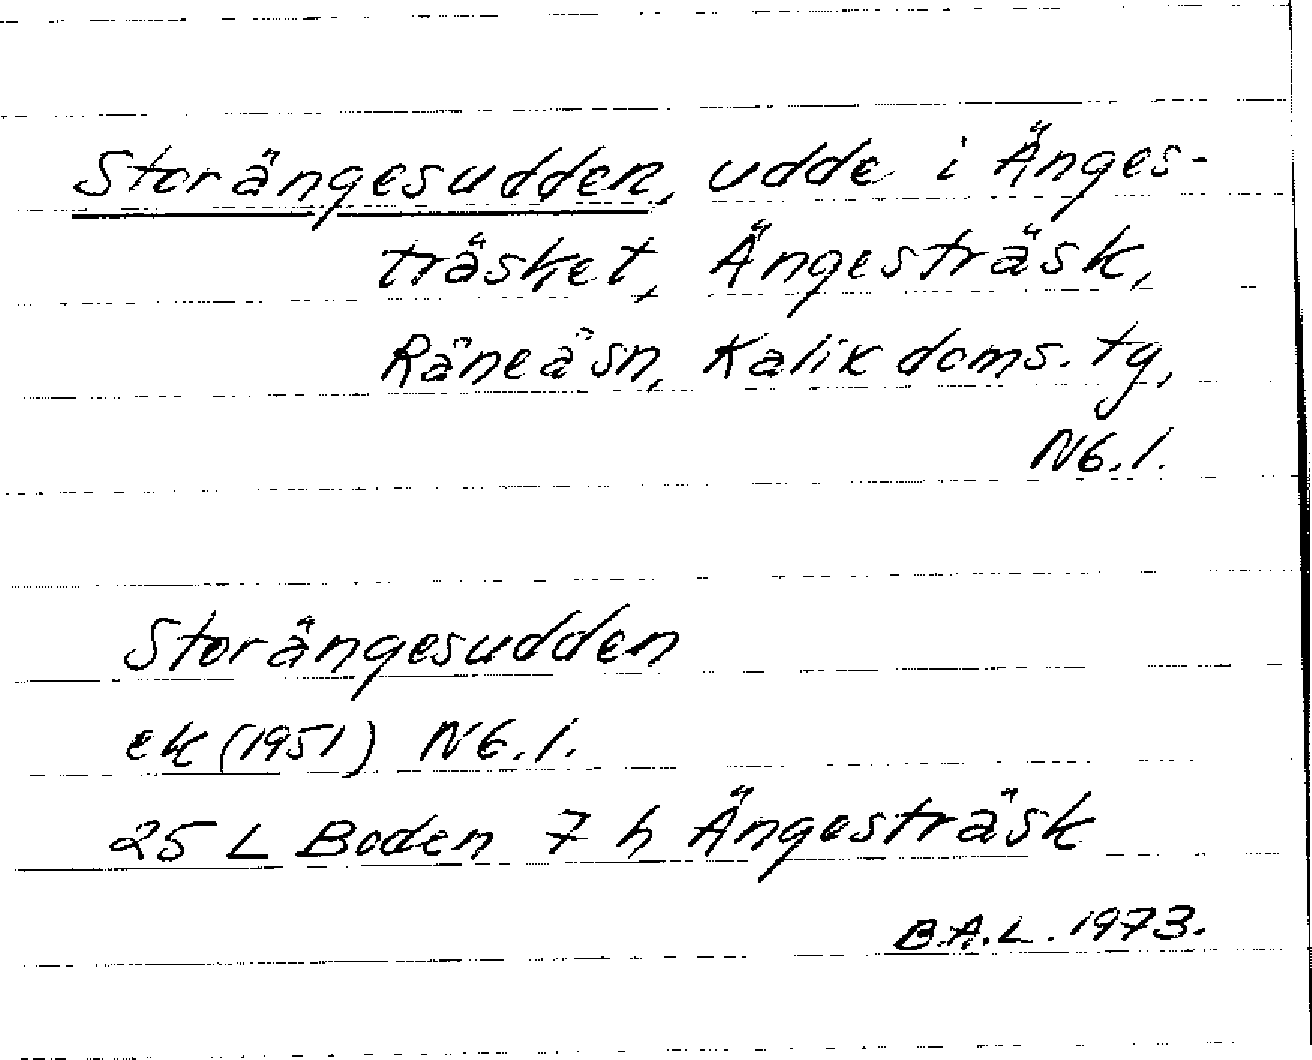 Storängesudden, udde i Änges-
träsket, Ängesträsk,
Råneå sn, Kalix doms. tg,
Nb. l.
Storängesudden
ek (1951) Nb. l.
25 L Boden 7 h Ängesträsk
B.A.L. 1973.